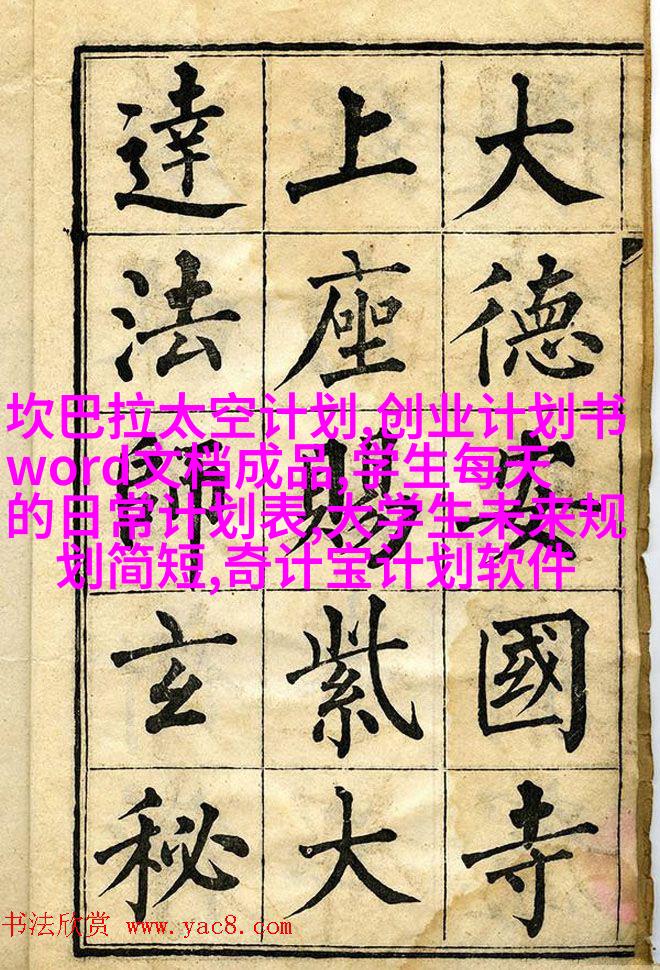 大德安國寺
上座賜紫大
達法師玄秘
坎巴拉太空计划,创业计划书
word文档成品,学生每天
的日常计划表,大学生未来规
划简短,奇计宝计划软件
书法欣赏 www.yac8.com